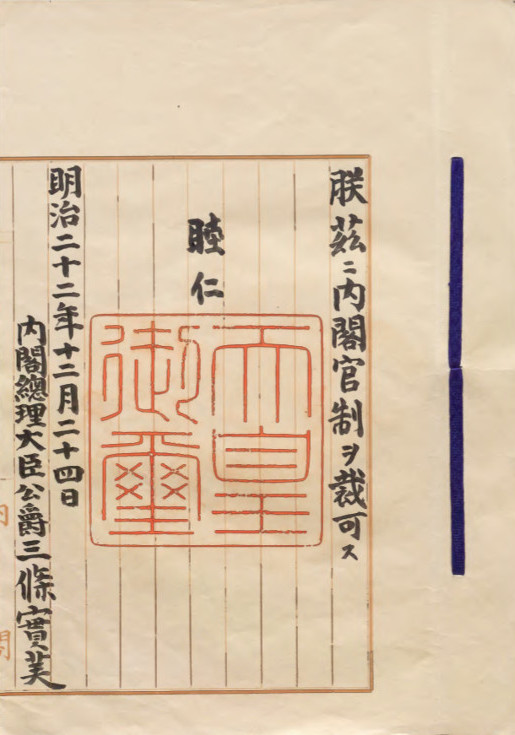 朕茲ニ內閣官制ヲ裁可ス
睦仁
天皇
御璽
明治二十二年十二月二十四日
內閣總理大臣公爵三條實美
內閣